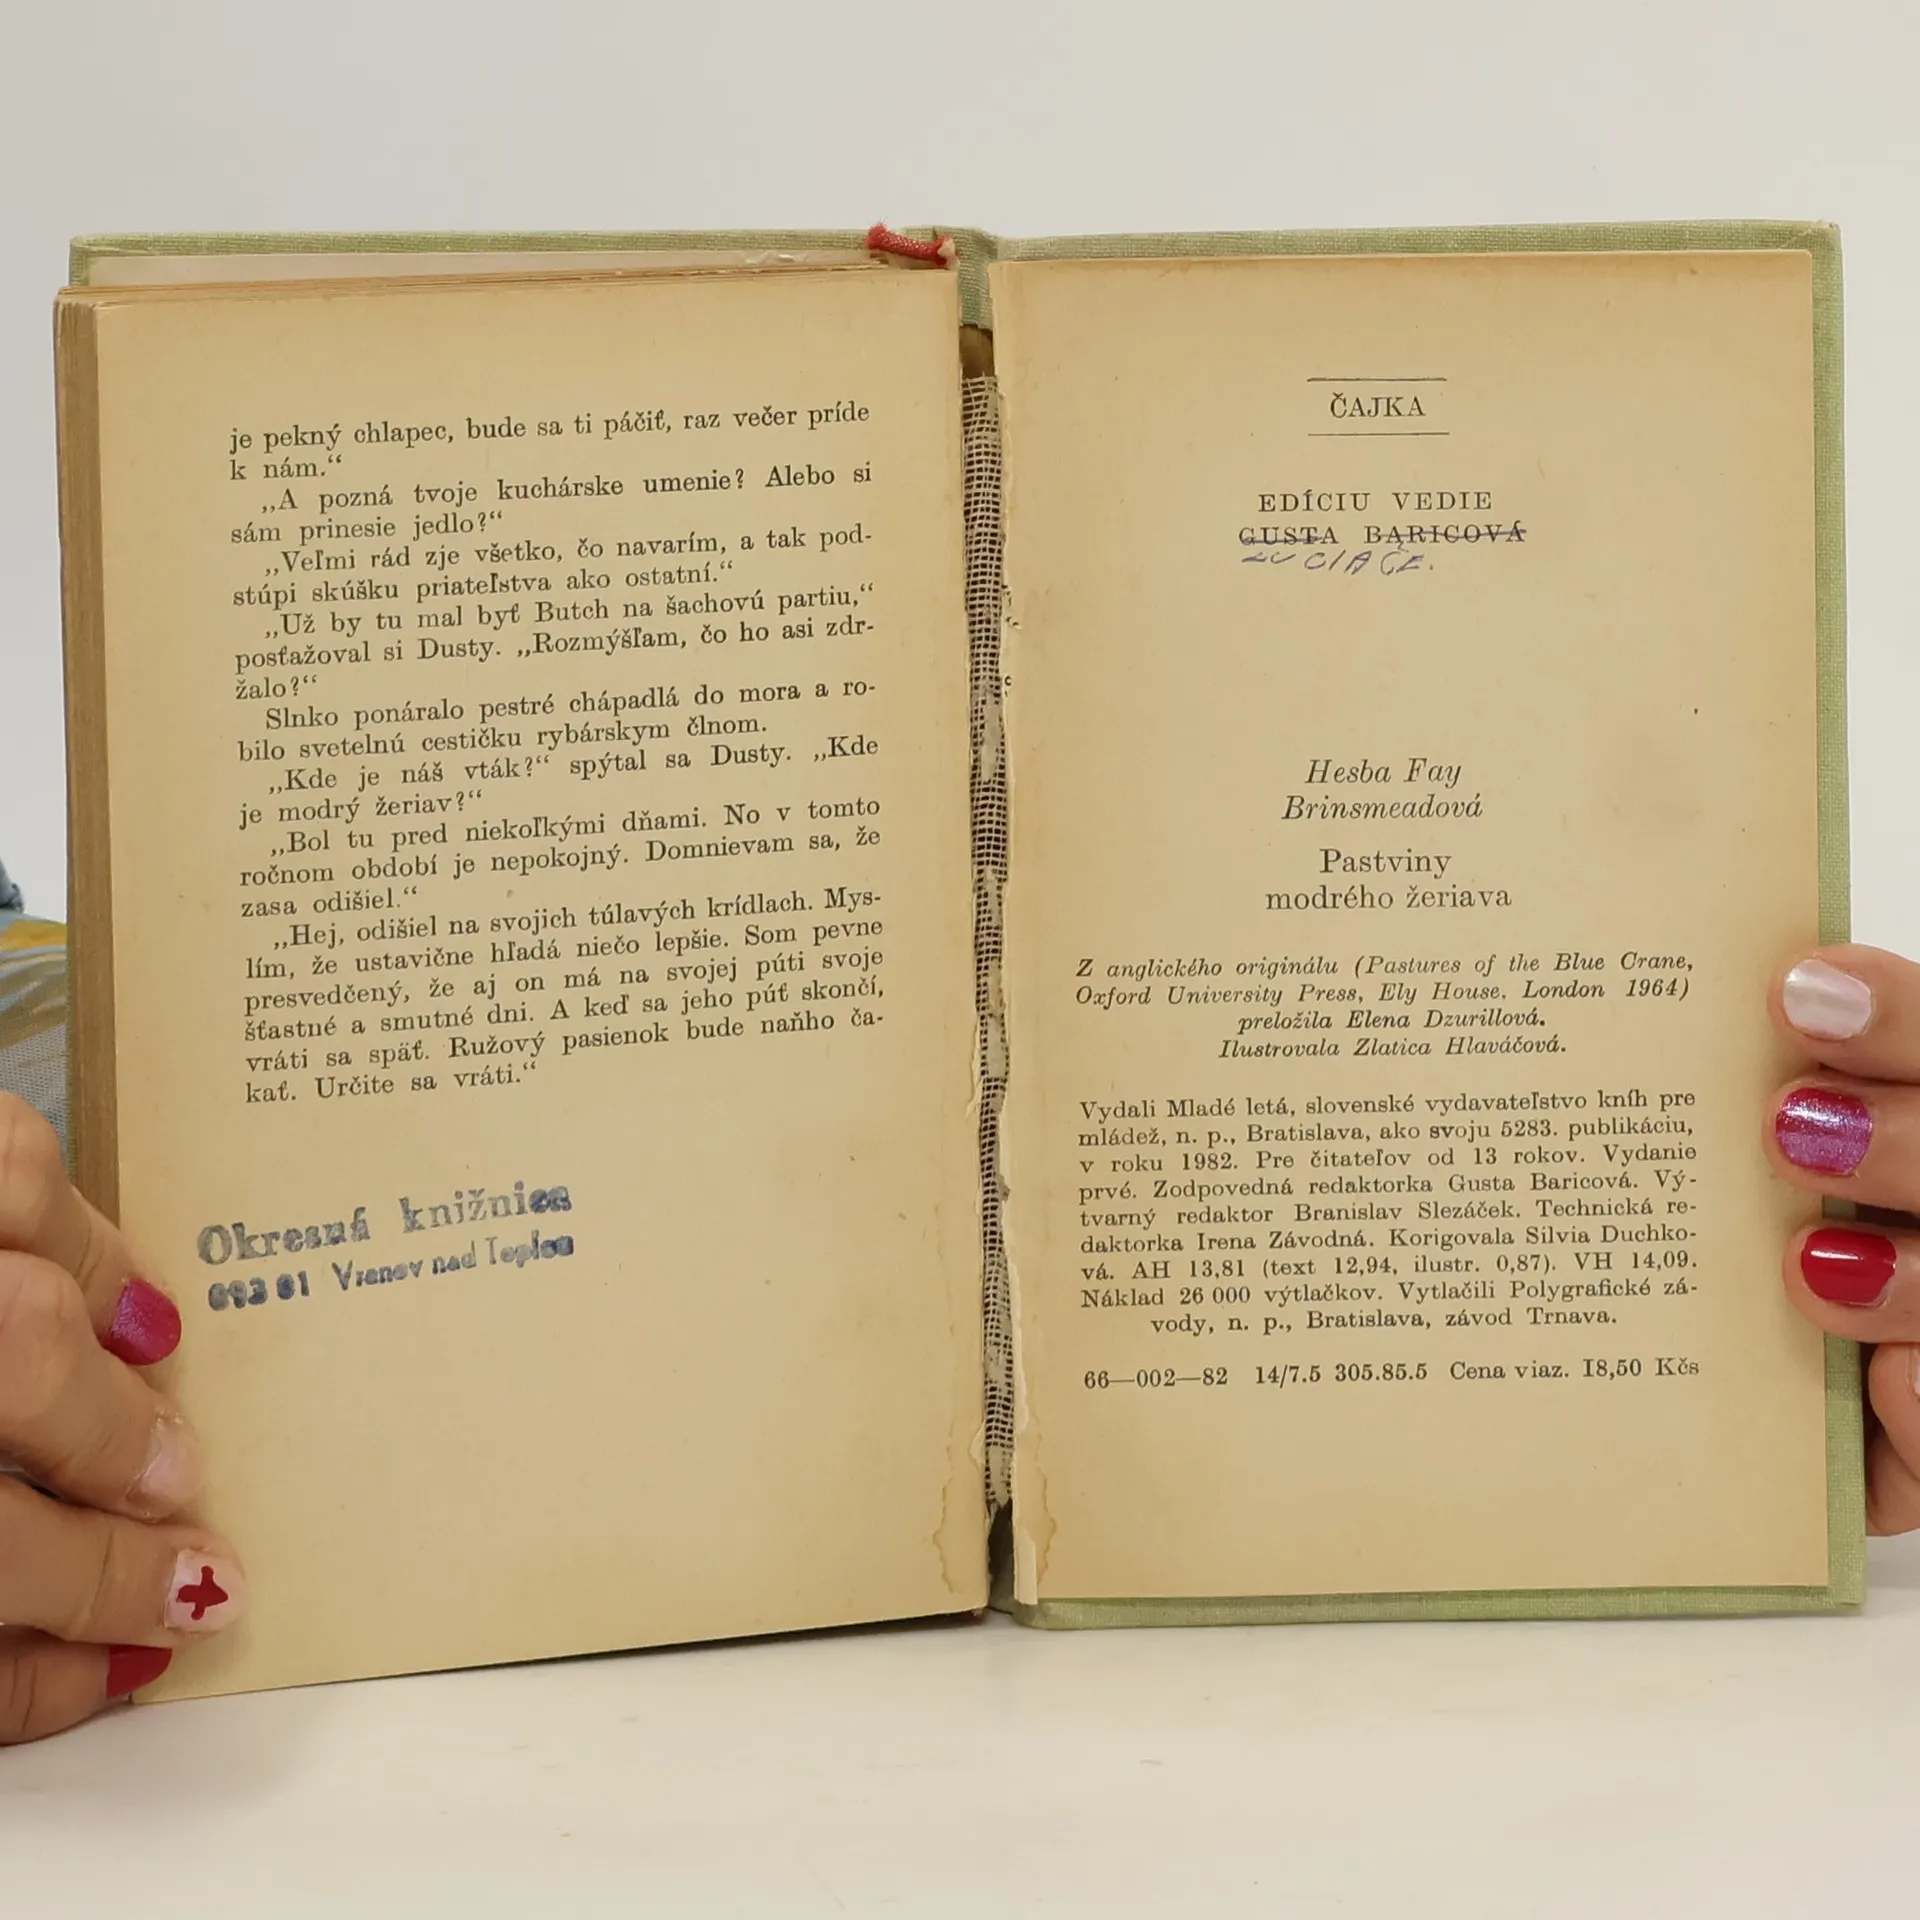 je pekný chlapec, bude sa ti páčiť, raz večer príde
k nám.“
„A pozná tvoje kuchárske umenie? Alebo si
sám prinesie jedlo?“
„Veľmi rád zje všetko, čo navarím, a tak pod-
stúpi skúšku priateľstva ako ostatní.“
„Už by tu mal byť Butch na šachovú partiu,“
posťažoval si Dusty. „Rozmýšľam, čo ho asi zdr-
žalo?“
Slnko ponáralo pestré chápadlá do mora a ro-
bilo svetelnú cestičku rybárskym člnom.
„Kde je náš vták?“ spýtal sa Dusty. „Kde
je modrý žeriav?“
„Bol tu pred niekoľkými dňami. No v tomto
ročnom období je nepokojný. Domnievam sa, že
zasa odišiel.“
„Hej, odišiel na svojich túlavých krídlach. Mys-
lím, že ustavične hľadá niečo lepšie. Som pevne
presvedčený, že aj on má na svojej púti svoje
šťastné a smutné dni. A keď sa jeho púť skončí,
vráti sa späť. Ružový pasienok bude naňho ča-
kať. Určite sa vráti.“
Okresná knižnica
093 01 Vranov nad Topľou
ČAJKA
EDÍCIU VEDIE
GUSTA BARICOVÁ
Hesba Fay
Brinsmeadová
Pastviny
modrého žeriava
Z anglického originálu (Pastures of the Blue Crane,
Oxford University Press, Ely House, London 1964)
preložila Elena Dzurillová.
Ilustrovala Zlatica Hlaváčová.
Vydali Mladé letá, slovenské vydavateľstvo kníh pre
mládež, n. p., Bratislava, ako svoju 5283. publikáciu,
v roku 1982. Pre čitateľov od 13 rokov. Vydanie
prvé. Zodpovedná redaktorka Gusta Baricová. Vý-
tvarný redaktor Branislav Slezáček. Technická re-
daktorka Irena Závodná. Korigovala Silvia Duchko-
vá. AH 13,81 (text 12,94, ilustr. 0,87). VH 14,09.
Náklad 26 000 výtlačkov. Vytlačili Polygrafické zá-
vody, n. p., Bratislava, závod Trnava.
66—002—82 14/7.5 305.85.5 Cena viaz. 18,50 Kčs